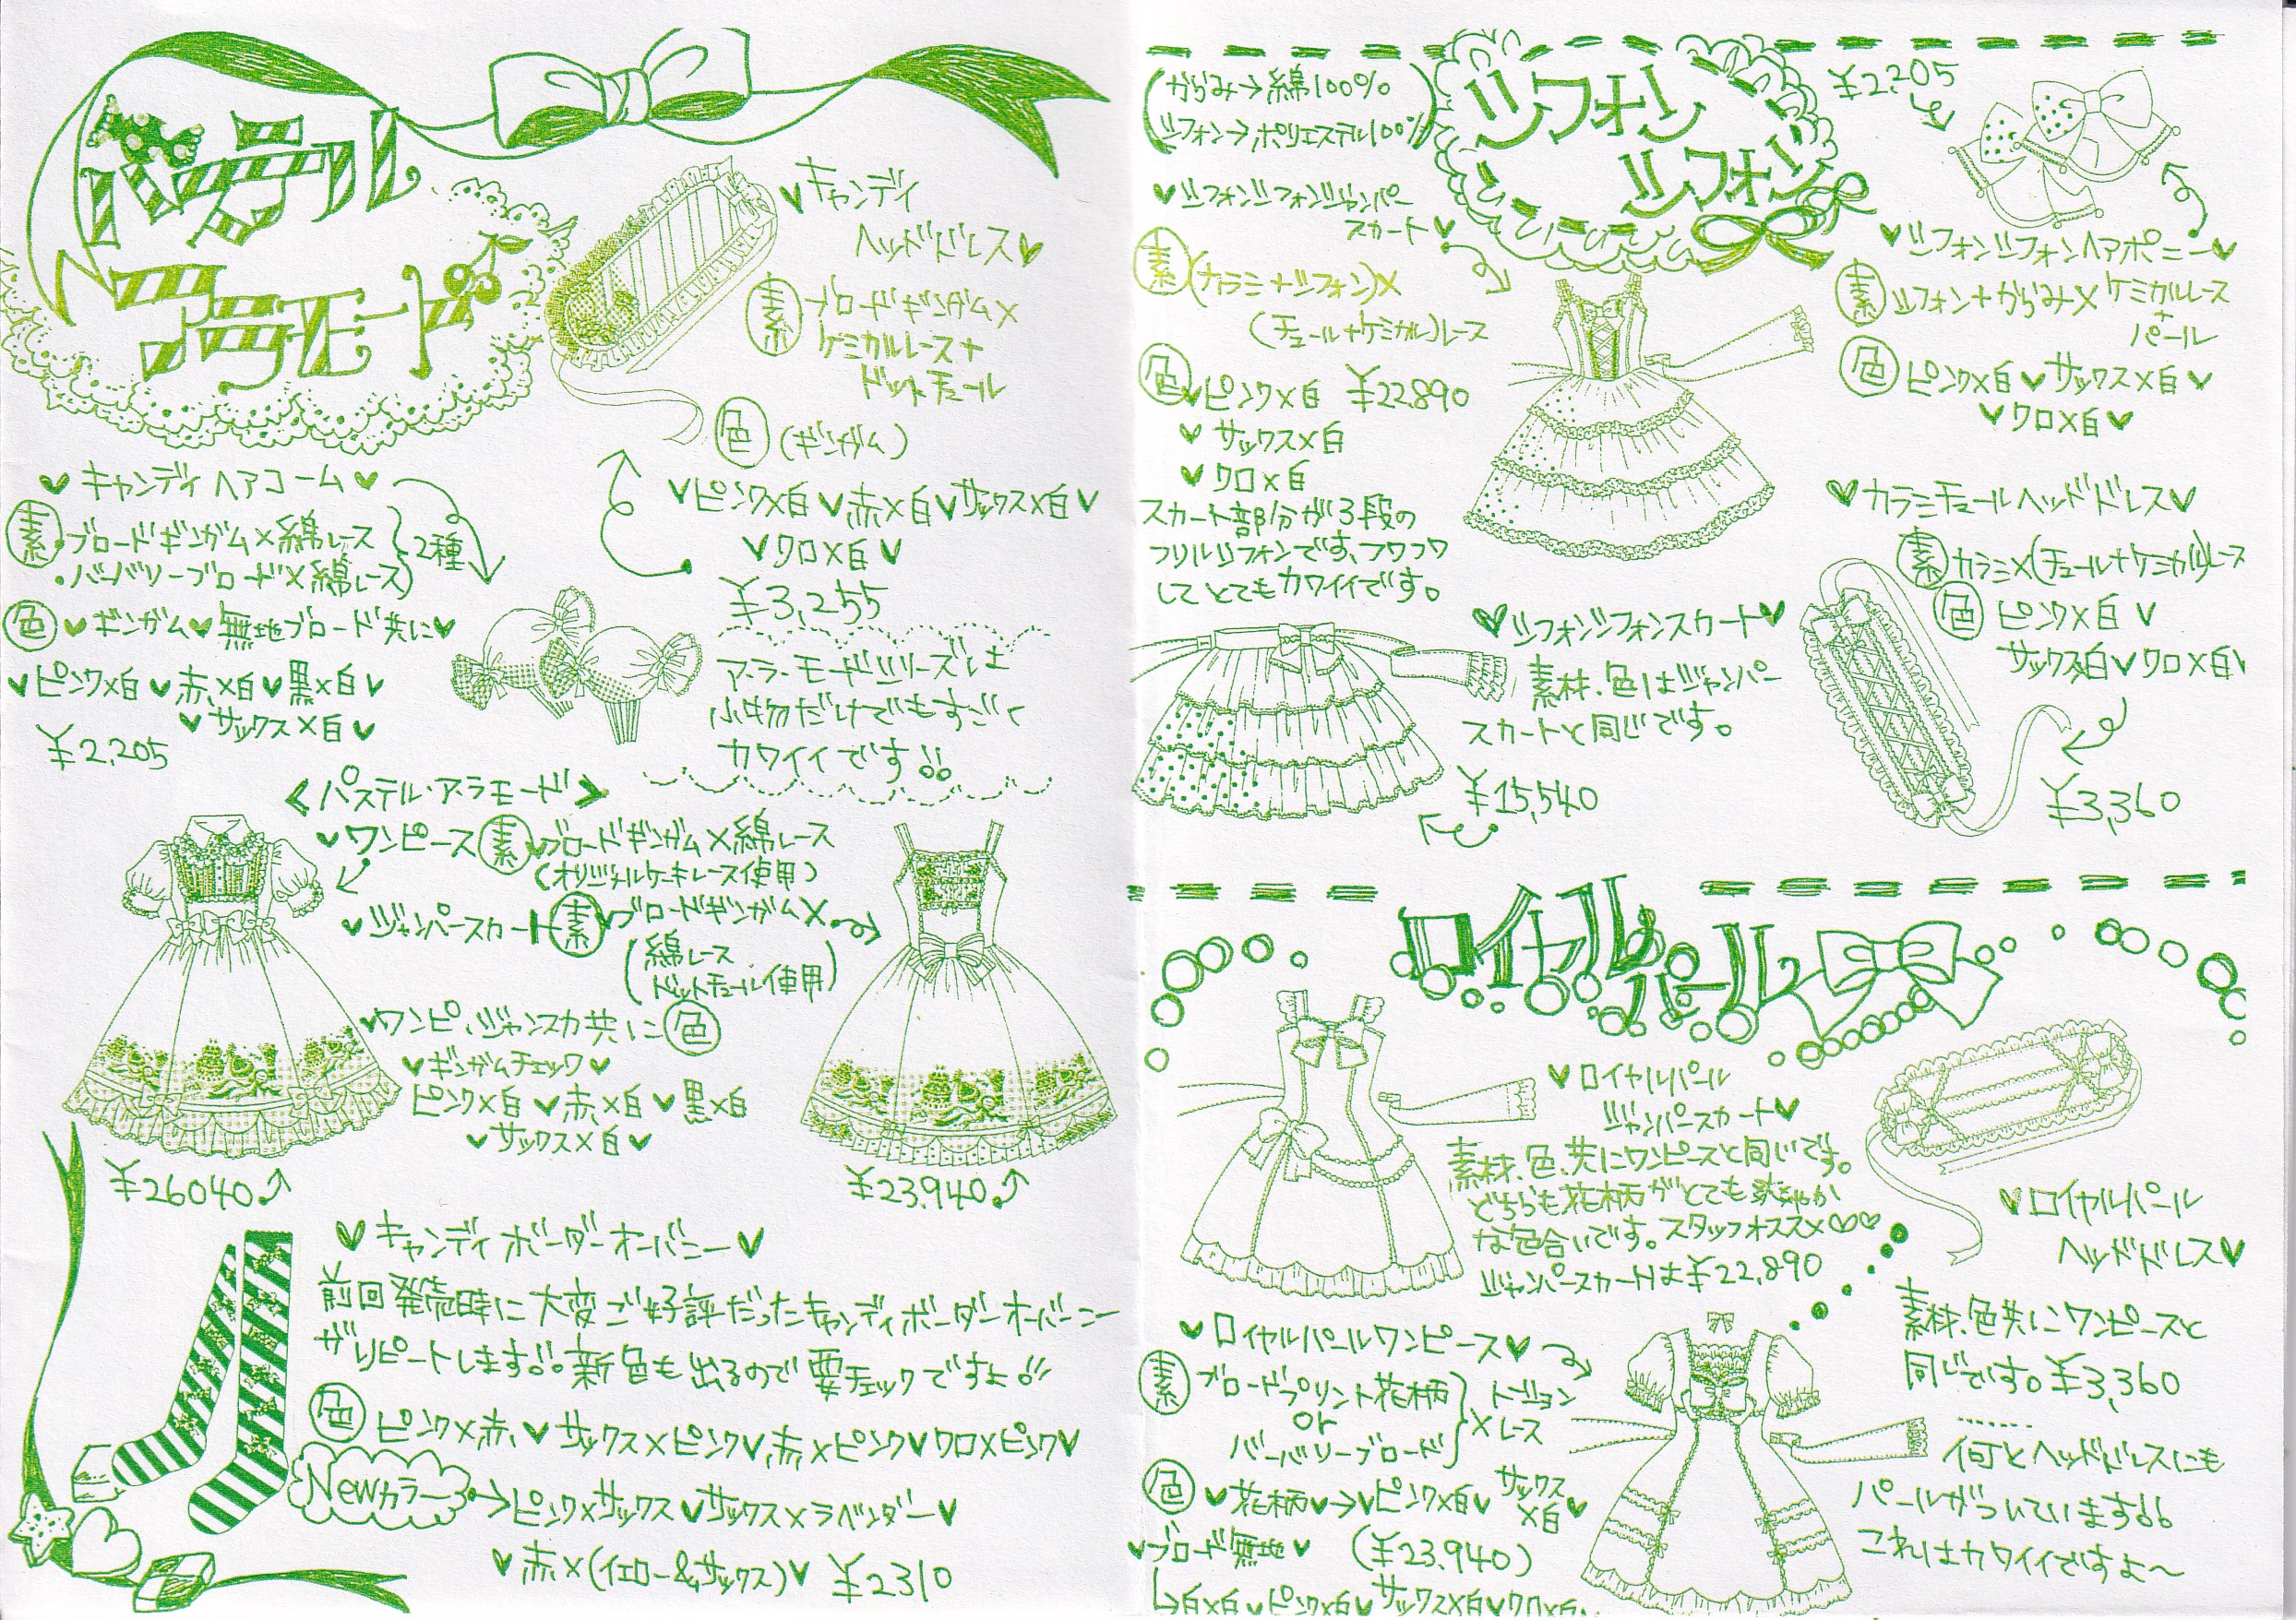 パステル
アラモード
♥キャンディ
ヘッドドレス♥
素 ブロードギンガム×
ケミカルレース+
ドットチュール
色 (ギンガム)
♥ピンク×白♥赤×白♥サックス×白♥
♥クロ×白♥
¥3,255
♥キャンディヘアコーム♥
素・ブロードギンガム×綿レース
・バーバリーブロード×綿レース
2種
色♥ギンガム♥無地ブロード共に♥
♥ピンク×白♥赤×白♥黒×白♥
♥サックス×白♥
¥2,205
ア・ラ・モードシリーズは
小物だけでもすごく
カワイイです!!
<パステル・アラモード>
♥ワンピース 素♥ブロードギンガム×綿レース
(オリジナルケーキレース使用)
♥ジャンパースカート 素♥ブロードギンガム×
(綿レース
ドットチュール使用)
♥ワンピ、ジャンスカ共に色
♥ギンガムチェック♥
ピンク×白♥赤×白♥黒×白
♥サックス×白♥
¥26040
¥23,940
♥キャンディボーダーオーバーニー♥
前回発売時に大変ご好評だったキャンディボーダーオーバーニー
がリピートします!!新色も出るので要チェックですよ!!
色 ピンク×赤♥サックス×ピンク♥赤×ピンク♥クロ×ピンク♥
Newカラー→ピンク×サックス♥サックス×ラベンダー♥
♥赤×(イエロー&サックス)♥ ¥2310
(からみ→綿100%
シフォン→ポリエステル100%)
シフォン
シフォン
♥シフォンシフォンジャンパー
スカート♥
素(カラミ+シフォン)×
(チュール+ケミカル)レース
色♥ピンク×白 ¥22,890
♥サックス×白
♥クロ×白
スカート部分が3段の
フリルシフォンです、フワフワ
してとてもカワイイです。
¥2,205
♥シフォンシフォンヘアポニー♥
素 シフォン+からみ×ケミカルレース
+
パール
色 ピンク×白♥サックス×白♥
♥クロ×白♥
♥カラミチュールヘッドドレス♥
素 カラミ×(チュール+ケミカル)レース
色 ピンク×白♥
サックス×白♥クロ×白♥
¥3,360
♥シフォンシフォンスカート♥
素材、色はジャンパー
スカートと同じです。
¥15,540
ロイヤルパール
♥ロイヤルパール
ジャンパースカート♥
素材、色、共にワンピースと同じです。
どちらも花柄がとても爽やか
な色合いです。スタッフオススメ♡♡
ジャンパースカートは¥22,890
♥ロイヤルパール
ヘッドドレス♥
素材、色共にワンピースと
同じです。¥3,360
何とヘッドドレスにも
パールがついています!!
これはカワイイですよ〜
♥ロイヤルパールワンピース♥
素 ブロードプリント花柄
or
バーバリーブロード
×トーションレース
色♥花柄♥→♥ピンク×白♥サックス
×白♥
♥ブロード無地♥ (¥23,940)
↳白×白♥ピンク×白♥サックス×白♥クロ×白